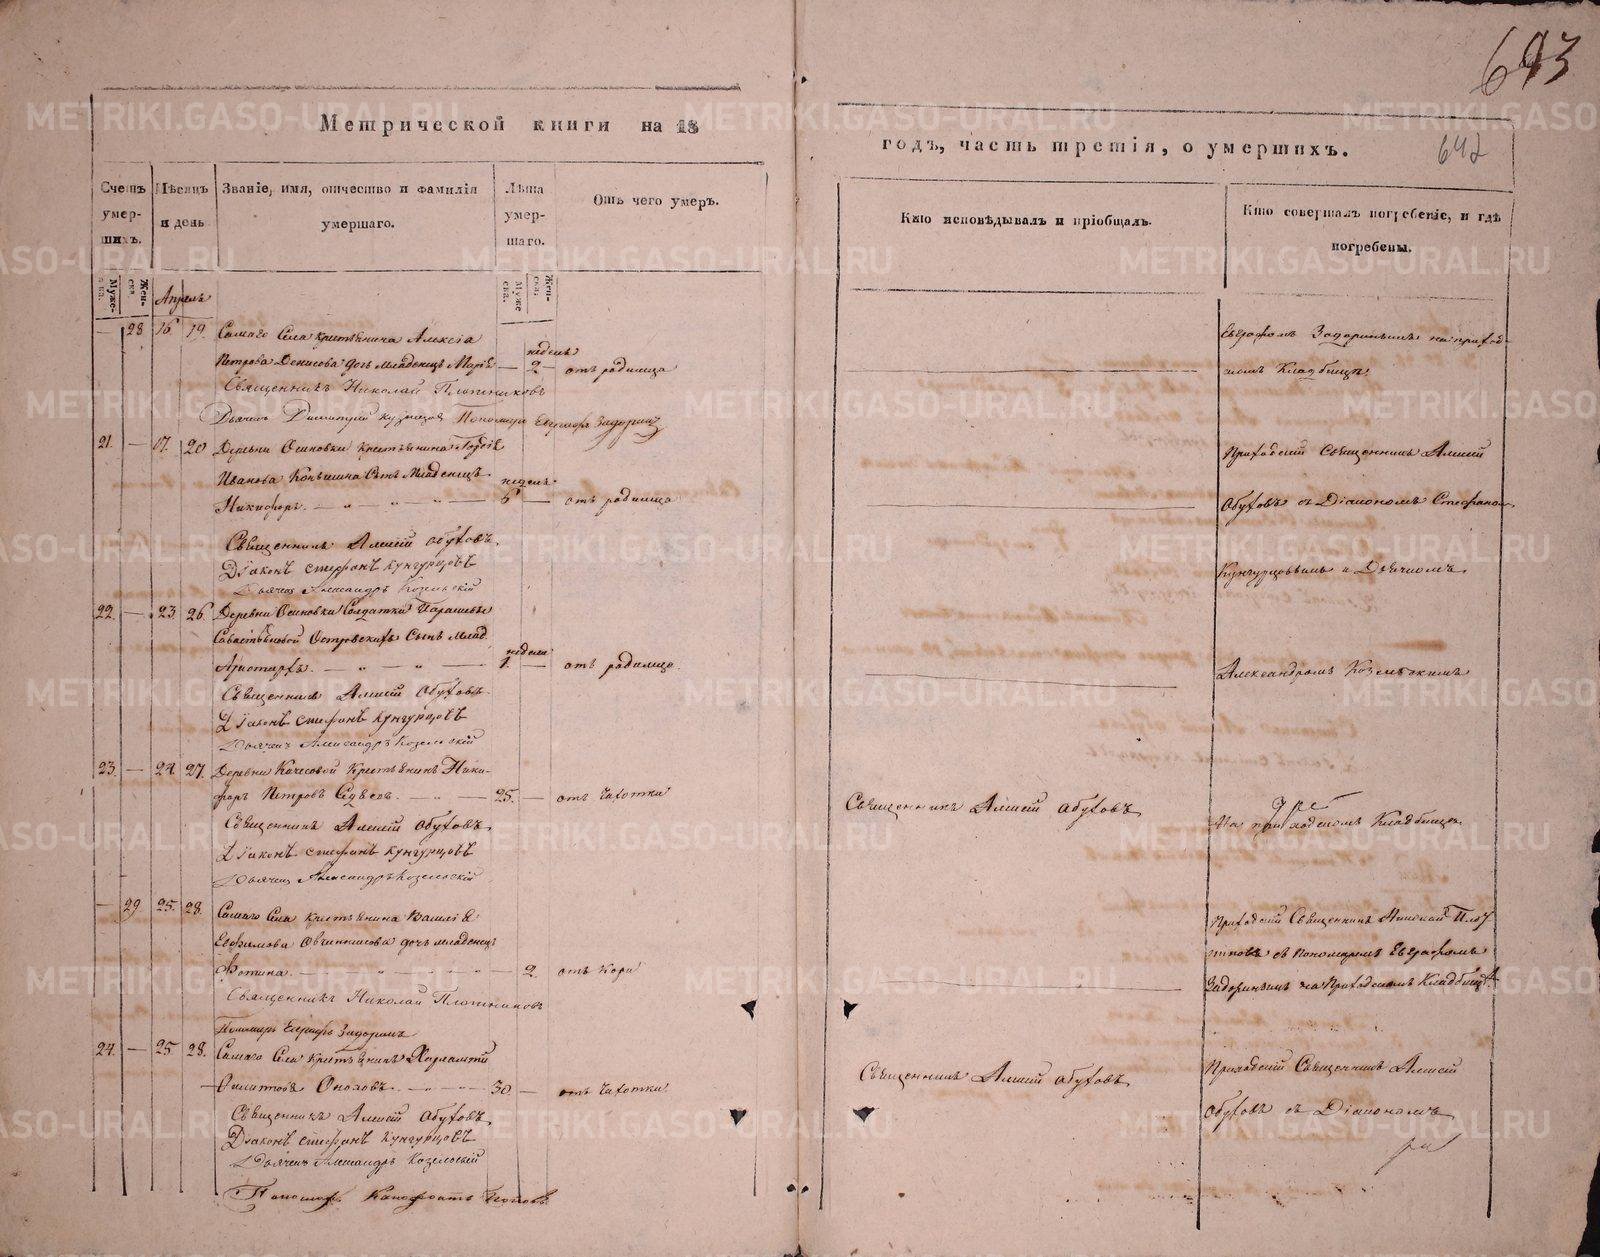 693
642
Метрической книги на 18
годъ, часть третія, о умершихъ.
Счетъ умер- шихъ.
Мѣсяцъ и день
Званіе, имя, отчество и фамилія умершаго.
Лѣта умер- шаго.
Отъ чего умеръ.
Кто исповѣдывалъ и пріобщалъ.
Кто совершалъ погребеніе, и гдѣ погребены.
Муже- ска.
Жен- ска
Муже ска.
Жен- ска.
Апрель
— 28 16 19. Самаго Села крестьянина Алексѣя
недель
Петрова Денисова дочь младенецъ Марія — 2 — отъ родимца
Священникъ Николай Плотниковъ
Дьячекъ Димитрій Кузнецов Пономарь Евграфъ Задорин
Евграфомъ Задоринымъ на приход-
скомъ Кладбище
21. — 17. 20 Деревни Осиновки крестьянина
недель
Иванова Конышина Сынъ Младенецъ
Никифоръ. — „ — „ — 6 — отъ родимца
Священникъ Алексій Обуховъ.
Діаконъ Стефанъ Кунгурцовъ
Дьячекъ Александръ Козельскій
Приходскій Священникъ Алексій
Обуховъ съ Діакономъ Стефаном
Кунгурцовымъ и Дьячкомъ
22. — 23. 26. Деревни Осиновки Солдатки Парасковьи
Савастьяновой Островскихъ Сынъ Млад.
неделя
Аристархъ. — „ — „ — 1. — отъ родимца.
Священникъ Алексій Обуховъ.
Діаконъ Стефанъ Кунгурцовъ
Дьячекъ Александръ Козельскій
Александромъ Козельскимъ
23. — 24 27. Деревни Качесовой Крестьянинъ Ники-
форъ Петровъ — „ — 25. — отъ Чахотки
Священникъ Алексій Обуховъ.
Діаконъ Стефанъ Кунгурцовъ
Дьячекъ Александръ Козельскій
Священникъ Алексій Обуховъ
На приходскомъ Кладбище.
— 29 25 28. Самаго Села крестьянина Василія
Евфимова Овчинникова дочь младенецъ
Фотина. — „ — „ — 2. отъ Кори
Священникъ Николай Плотниковъ
Пономарь Евграфъ Задоринъ
Приходскій Священникъ Николай Плот
никовъ съ Пономаремъ Евграфомъ
Задоринымъ на Приходскомъ Кладбищѣ
24. — 25 28. Самаго Села Крестьянинъ Харлампій
— „ — „ — 30. — отъ Чахотки
Священникъ Алексій Обуховъ
Діаконъ Стефанъ Кунгурцовъ
Дьячекъ Александръ Козельскій
Пономарь Попов
Священникъ Алексій Обуховъ
Приходскій Священникъ Алексій
Обуховъ съ Діакономъ
METRIKI.GASO-URAL.RU